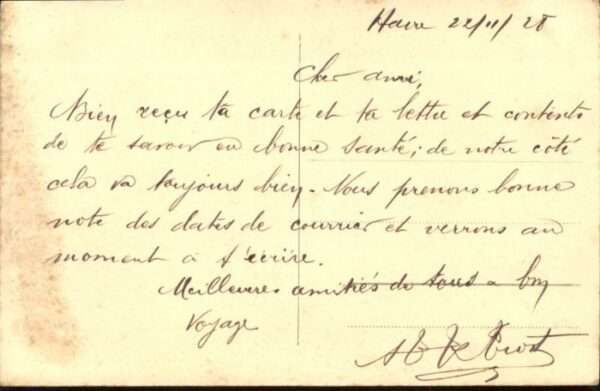 Havre 22/11/28
Cher ami,
Bien reçu ta carte et ta lettre et contents
de te savoir en bonne santé; de notre côté
cela va toujours bien. Nous prenons bonne
note des dates de courrier et verrons au
moment à t'écrire.
Meilleures amitiés de tous & bon
voyage